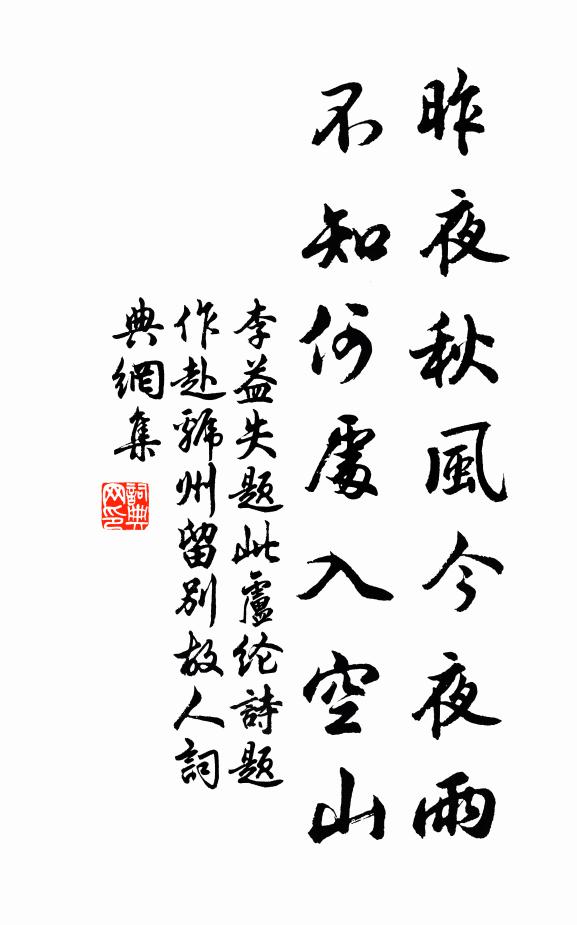 昨夜秋風今夜雨
不知何處入空山
李益失题此盧纶詩题
作赴虢州留别故人詞
典網集
詞典
网印